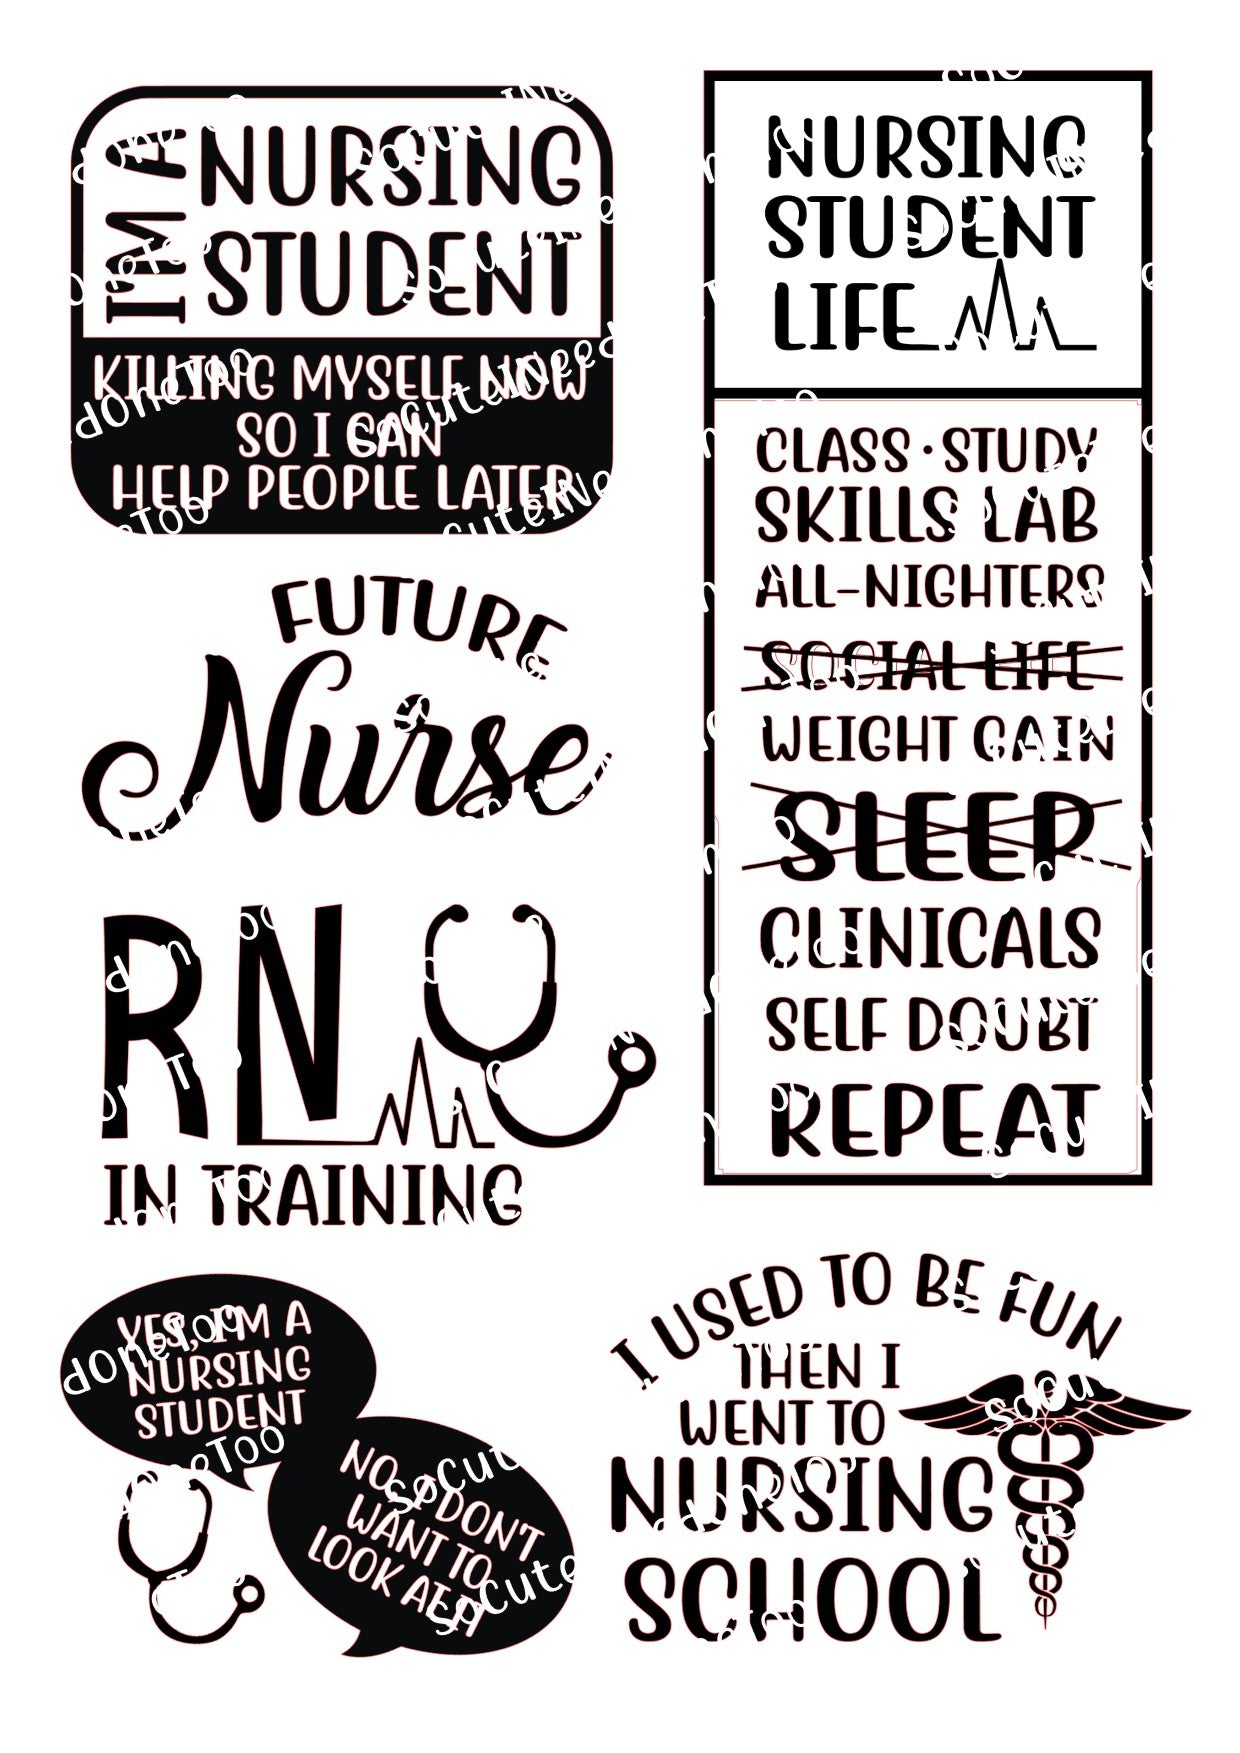 I'M A
NURSING
STUDENT
KILLING MYSELF NOW
SO I CAN
HELP PEOPLE LATER
NURSING
STUDENT
LIFE
CLASS · STUDY
SKILLS LAB
ALL-NIGHTERS
SOCIAL LIFE
WEIGHT GAIN
SLEEP
CLINICALS
SELF DOUBT
REPEAT
FUTURE
Nurse
RN
IN TRAINING
YES, I'M A
NURSING
STUDENT
NO, I DON'T
WANT TO
LOOK AT IT
I USED TO BE FUN
THEN I
WENT TO
NURSING
SCHOOL
SoCuteINeedOneToo